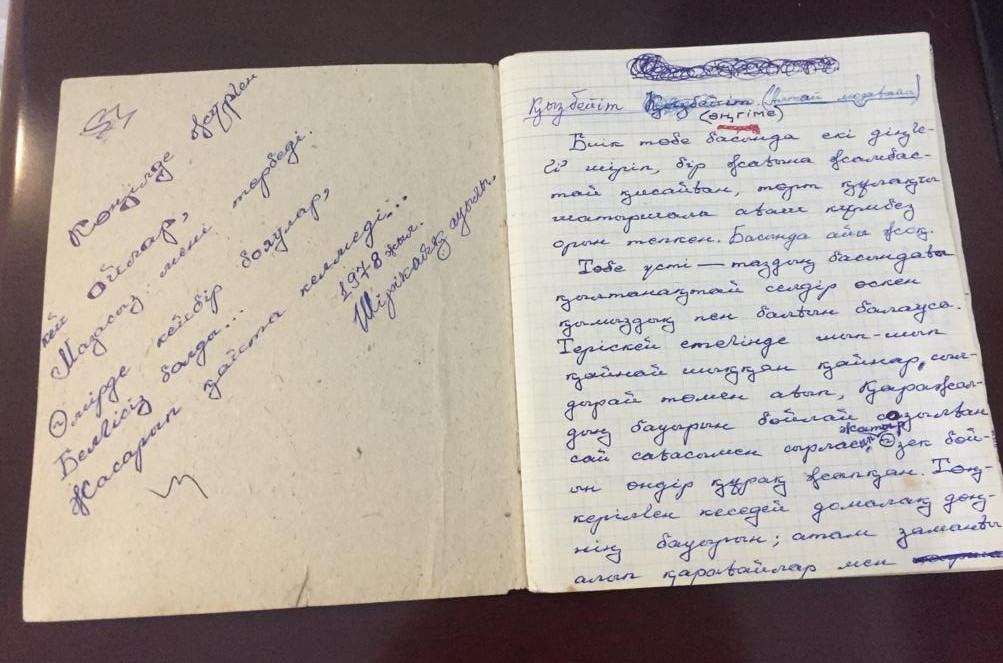 Көңілде жүрген
кей ойлар,
Мазасыз мені тербеді.
Өмірде кейбір бояулар,
Белгісіз болды...
Жасарып қайта келмеді...
1978 жыл.
Шірікаяқ ауылы.
Қызбейіт (Алтай моласы)
(әңгіме)
Биік төбе басында екі діңге-
гі шіріп, бір жағына жамбас-
тай қисайған, төрт құлақты
шатыршалы ағаш күмбез
орын тепкен. Басында айы жоқ.
Төбе үсті — таздың басындағы
қылтанақтай селдір өскен
қымыздық пен балғын балауса.
Теріскей етегінде шып-шып
қайнай шыққан қайнар, сыл-
дырай төмен ағып, Қаражал-
дың бауырын бойлай созылған
сай сағасымен сырласып жатыр. Өзек бой-
ын өндір құрақ жапқан. Төң-
керілген кеседей домалақ дөң-
нің бауырын; атам заманғы
алып қарағайлар мен